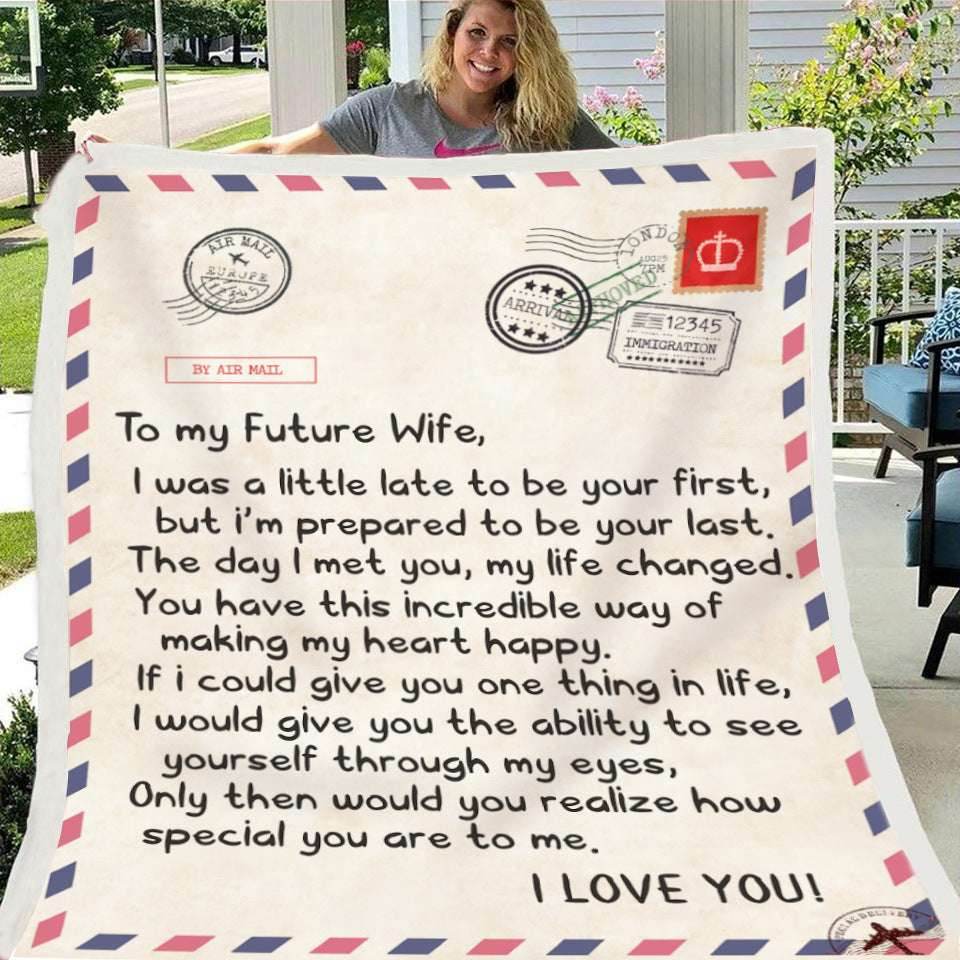 AIR MAIL
EUROPE
LONDON
AUG25
7PM
ARRIVAL
12345
IMMIGRATION
BY AIR MAIL
To my Future Wife,
I was a little late to be your first,
but i'm prepared to be your last.
The day I met you, my life changed.
You have this incredible way of
making my heart happy.
If i could give you one thing in life,
I would give you the ability to see
yourself through my eyes,
Only then would you realize how
special you are to me.
I LOVE YOU!